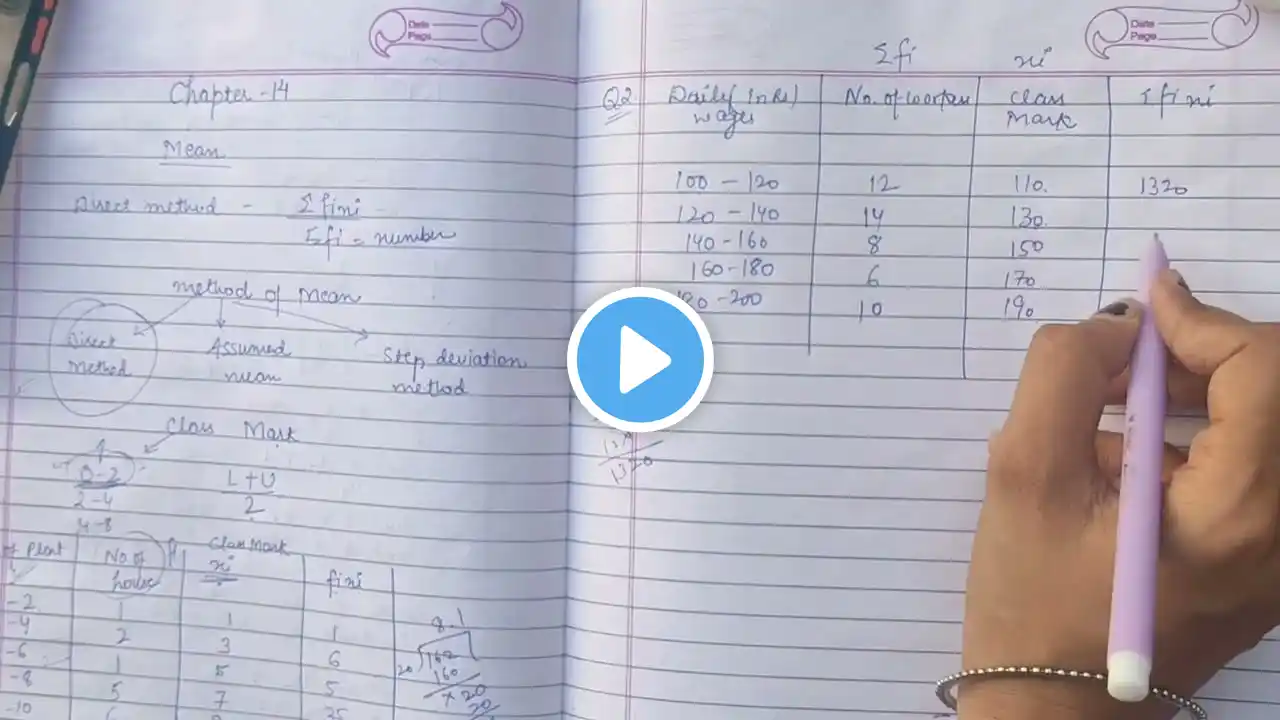 Date
Page
Chapter -14
Mean
Direct method - Σ fixi
Σfi = number
method of Mean
Direct Method
Assumed mean
Step deviation method
Class Mark
0-2
2-4
4-8
L+U
2
Plot No. of house Class Mark xi fixi
-2 1 1 1
-4 2 3 6
-6 1 5 5
-8 5 7 35
-10
8.1
20 162
160
20
20
Date
Page
Σfi xi
Q2 Daily (in Rs) wages No. of workers Class Mark Σ fi xi
100 - 120 12 110 1320
120 - 140 14 130
140 - 160 8 150
160 - 180 6 170
-200 10 190
1320